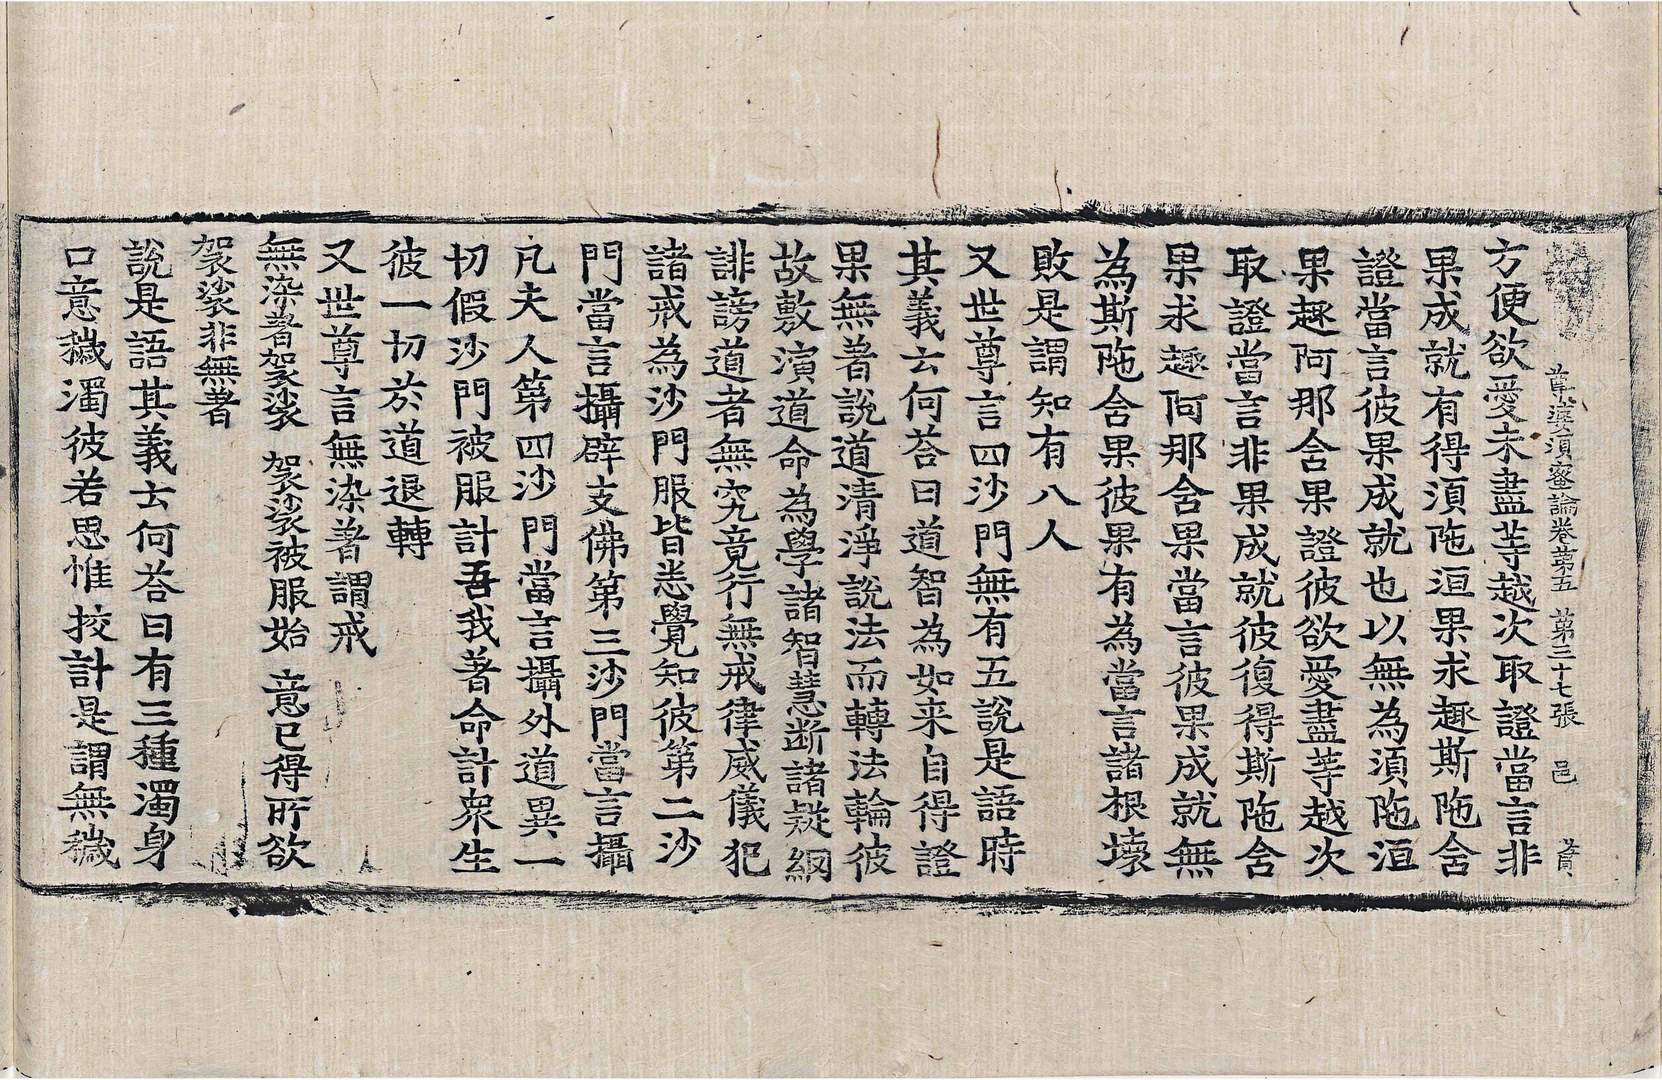 尊婆須蜜論卷第五　第三十七張　邑
方便欲愛未盡等越次取證當言非
果成就有得湏陁洹果求趣斯陁舍
證當言彼果成就也以無為湏陁洹
果趣阿那舍果證彼欲愛盡等越次
取證當言非果成就彼復得斯陁舍
果求趣阿那舍果當言彼果成就無
為斯陁舍果彼果有為當言諸根壞
敗是謂知有八人
又世尊言四沙門無有五說是語時
其義云何荅曰道智為如来自得證
果無著說道清淨說法而轉法輪彼
故敷演道命為學諸智慧断諸疑網
誹謗道者無究竟行無戒律威儀犯
諸戒為沙門服皆悉覺知彼第二沙
門當言攝辟支佛第三沙門當言攝
凡夫人第四沙門當言攝外道異一
切假沙門被服計吾我著命計衆生
彼一切於道退轉
又世尊言無染著謂戒
無染著袈裟　袈裟被服始　意已得所欲
袈裟非無著
說是語其義云何荅曰有三種濁身
口意穢濁彼若思惟挍計是謂無穢